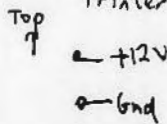 Top
+12V
Gnd